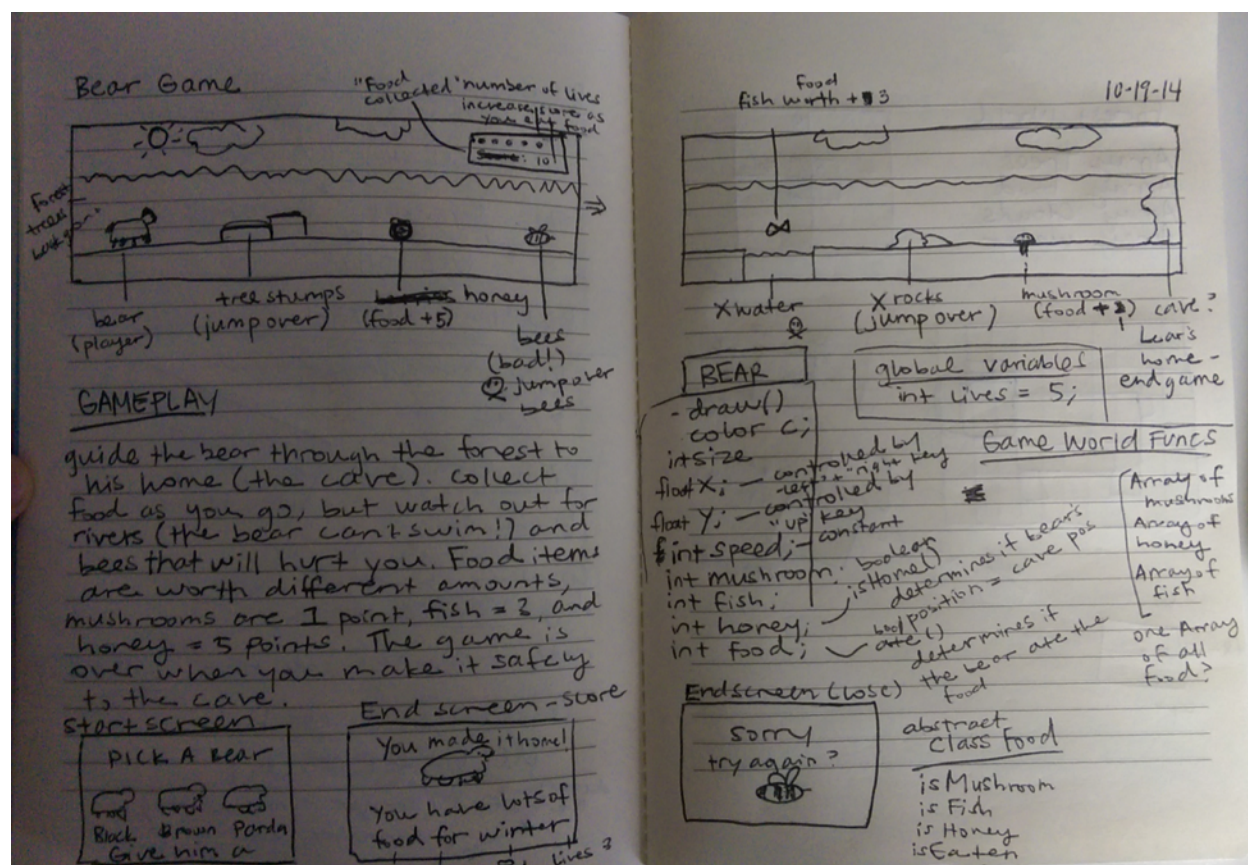 Bear Game
"Food collected"
number of lives
increase score as
you eat food
: 10
Forest
trees
bear
(player)
tree stumps
(jump over)
honey
(food +5)
bees
(bad!)
jump over
bees
GAMEPLAY
guide the bear through the forest to
his home (the cave). collect
food as you go, but watch out for
rivers (the bear can't swim!) and
bees that will hurt you. Food items
are worth different amounts,
mushrooms are 1 point, fish = 3, and
honey = 5 points. The game is
over when you make it safely
to the cave.
start screen
PICK A Bear
Black Brown Panda
Give him a
End screen - score
You made it home!
You have lots of
food for winter
lives ?
10-19-14
food
fish worth + 3
X water
X rocks
(jump over)
mushroom
(food +
cave?
bear's
home -
end game
BEAR
- draw()
color c;
int size
float X; — controlled by
left + "right" key
float Y; — controlled by
"up" key
int speed; — constant
int mushroom;
int fish;
int honey;
int food;
boolean
isHome()
determines if bear's
position = cave pos
ate()
determines if
the bear ate the
food
global variables
int lives = 5;
Game World Funcs
Array of
mushrooms
Array of
honey
Array of
fish
one Array
of all
food?
Endscreen (lose)
sorry
try again?
abstract
Class Food
is Mushroom
is Fish
is Honey
is Eaten